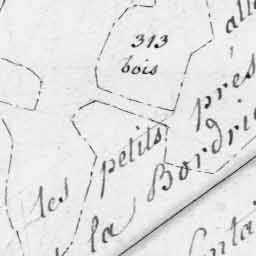 313
bois
les petits prés
la Bordri